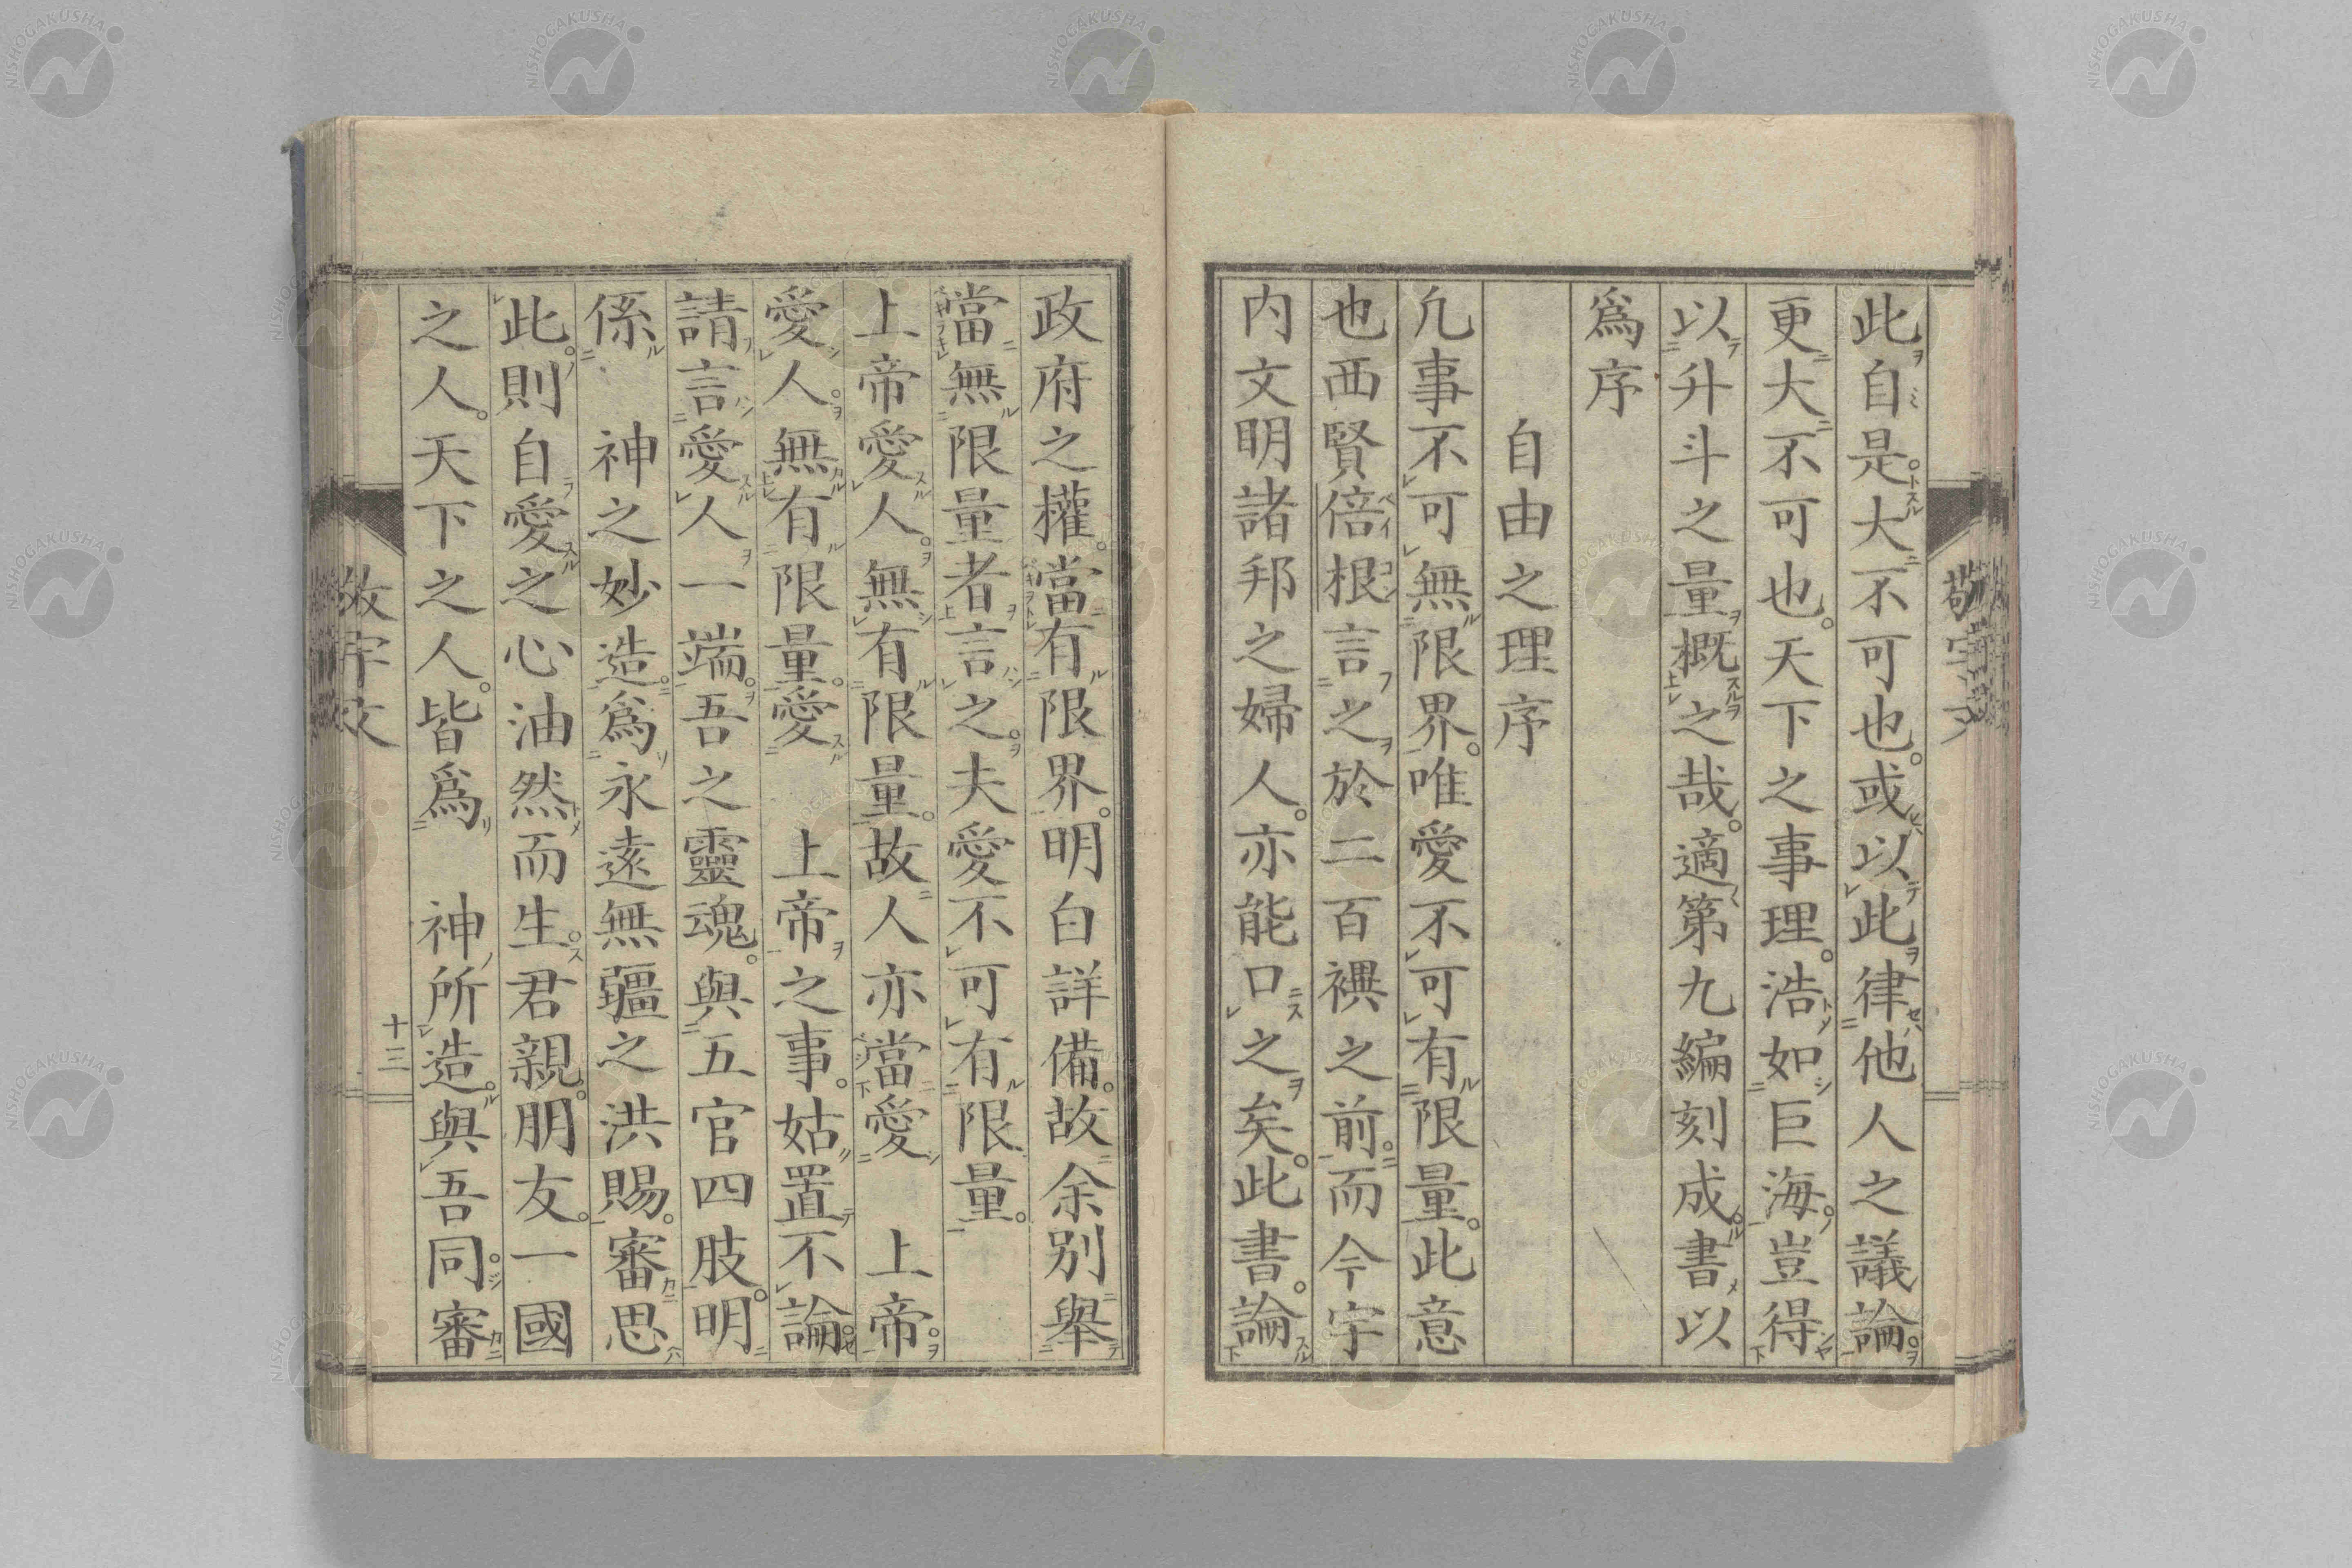 此自是大不可也。或以此律他人之議論。
更大不可也。天下之事理。浩如巨海。豈得
以升斗之量概之哉。適第九編刻成。書以
爲序
自由之理序
凢事不可無限界。唯愛不可有限量。此意
也西賢倍根言之於二百禩之前。而今宇
内文明諸邦之婦人。亦能口之矣。此書。論
政府之權。當有限界。明白詳備。故余別舉
當無限量者言之。夫愛不可有限量。
上帝愛人。無有限量。故人亦當愛 上帝。
愛人。無有限量。愛 上帝之事。姑置不論。
請言愛人一端。吾之靈魂。與五官四肢。明
係 神之妙造。爲永遠無疆之洪賜。審思
此。則自愛之心油然而生。君親。朋友。一國
之人。天下之人。皆爲 神所造。與吾同。審
敬宇文
十三
NISHOGAKUSHA